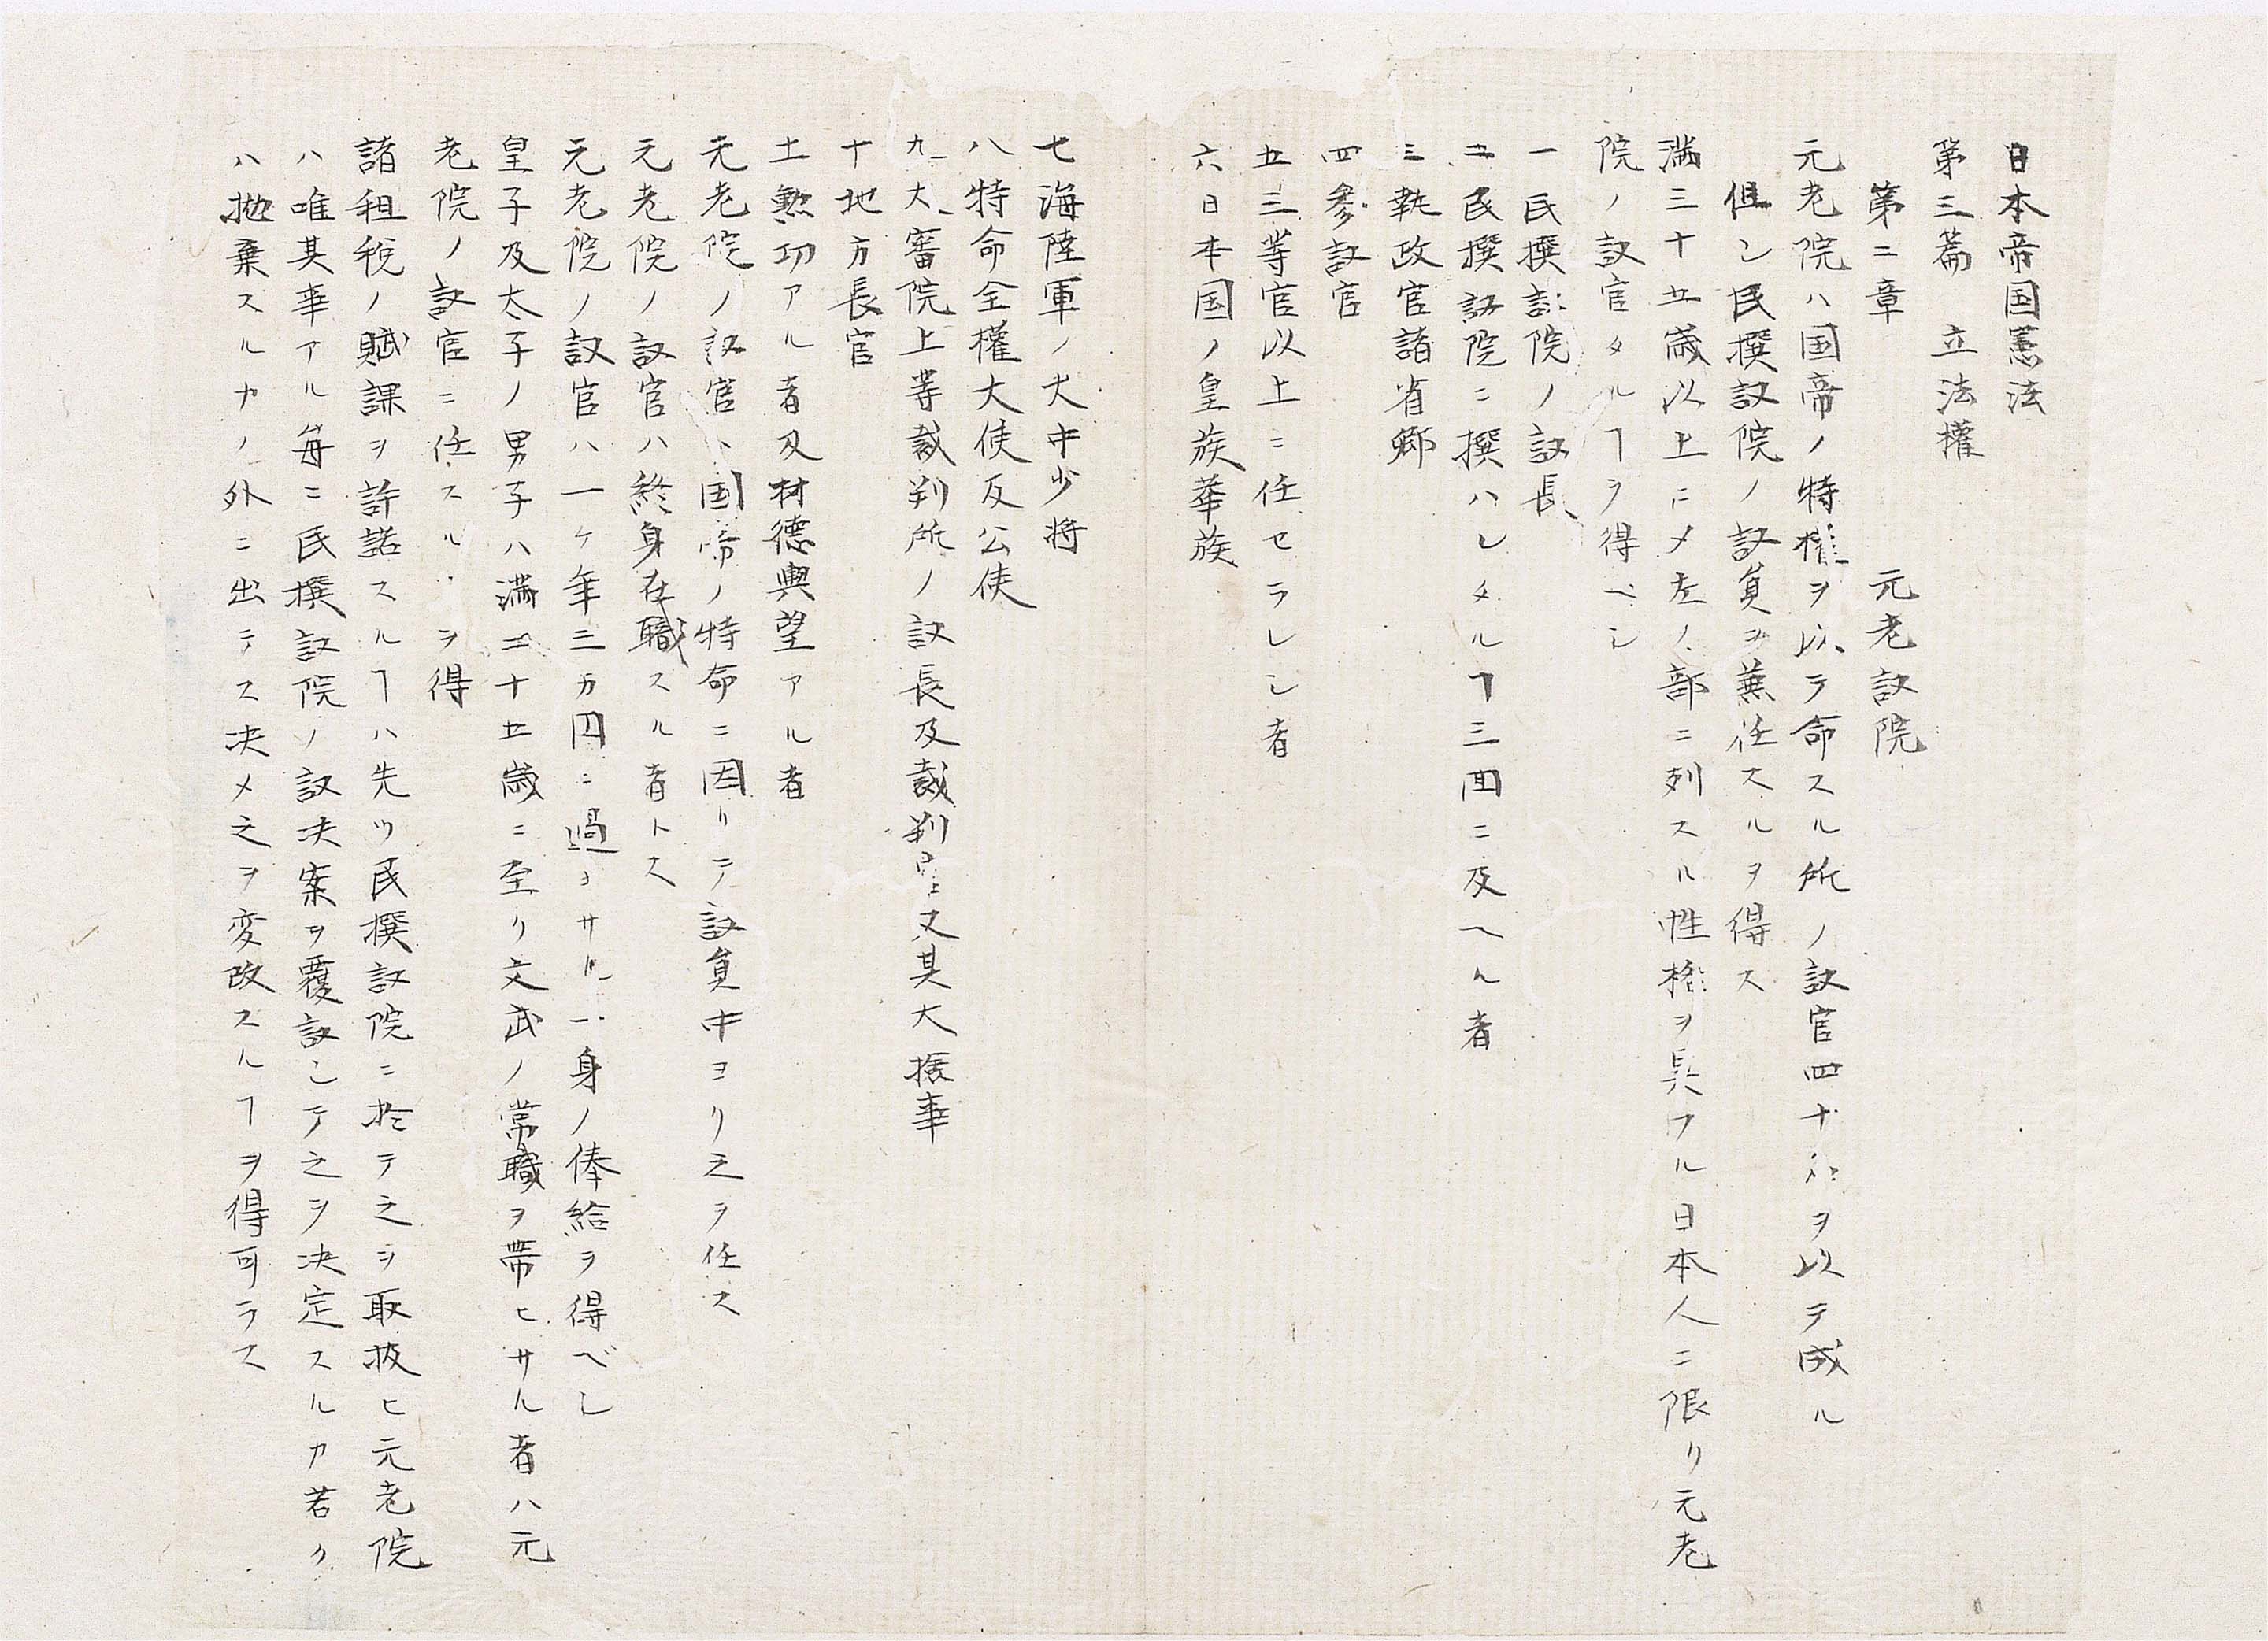 日本帝国憲法
第三篇　立法權
第二章　　　　元老議院
元老院ハ国帝ノ特権ヲ以テ命スル所ノ議官四十名ヲ以テ成ル
但シ民撰議院ノ議員ヲ兼任スルヲ得ス
満三十五歳以上ニ〆左ノ部ニ列スル性格ヲ具フル日本人ニ限リ元老
院ノ議官タルヿヲ得ベシ
一民撰議院ノ議長
二民撰議院ニ撰ハレタルヿ三回ニ及ヘル者
三執政官諸省卿
四參議官
五三等官以上ニ任セラレシ者
六日本国ノ皇族華族
七海陸軍ノ大中少将
八特命全權大使及公使
九大審院上等裁判所ノ議長及裁判官又其大撿事
十地方長官
土勲功アル者及材德輿望アル者
元老院ノ議官ハ国帝ノ特命ニ因リテ議員中ヨリ之ヲ任ス
元老院ノ議官ハ終身在職スル者トス
元老院ノ議官ハ一ケ年三万円ニ過ヨサル一身ノ俸給ヲ得ベシ
皇子及太子ノ男子ハ満二十五歳ニ至リ文武ノ常職ヲ帯ヒサル者ハ元
老院ノ議官ニ任スル、ヲ得
諸租税ノ賦課ヲ許諾スルヿハ先ツ民撰議院ニ於テ之ヲ取扱ヒ元老院
ハ唯其事アル毎ニ民撰議院ノ議决案ヲ覆議シテ之ヲ决定スルカ若ク
ハ抛棄スルカノ外ニ出テス决メ之ヲ変改スルヿヲ得可ラス